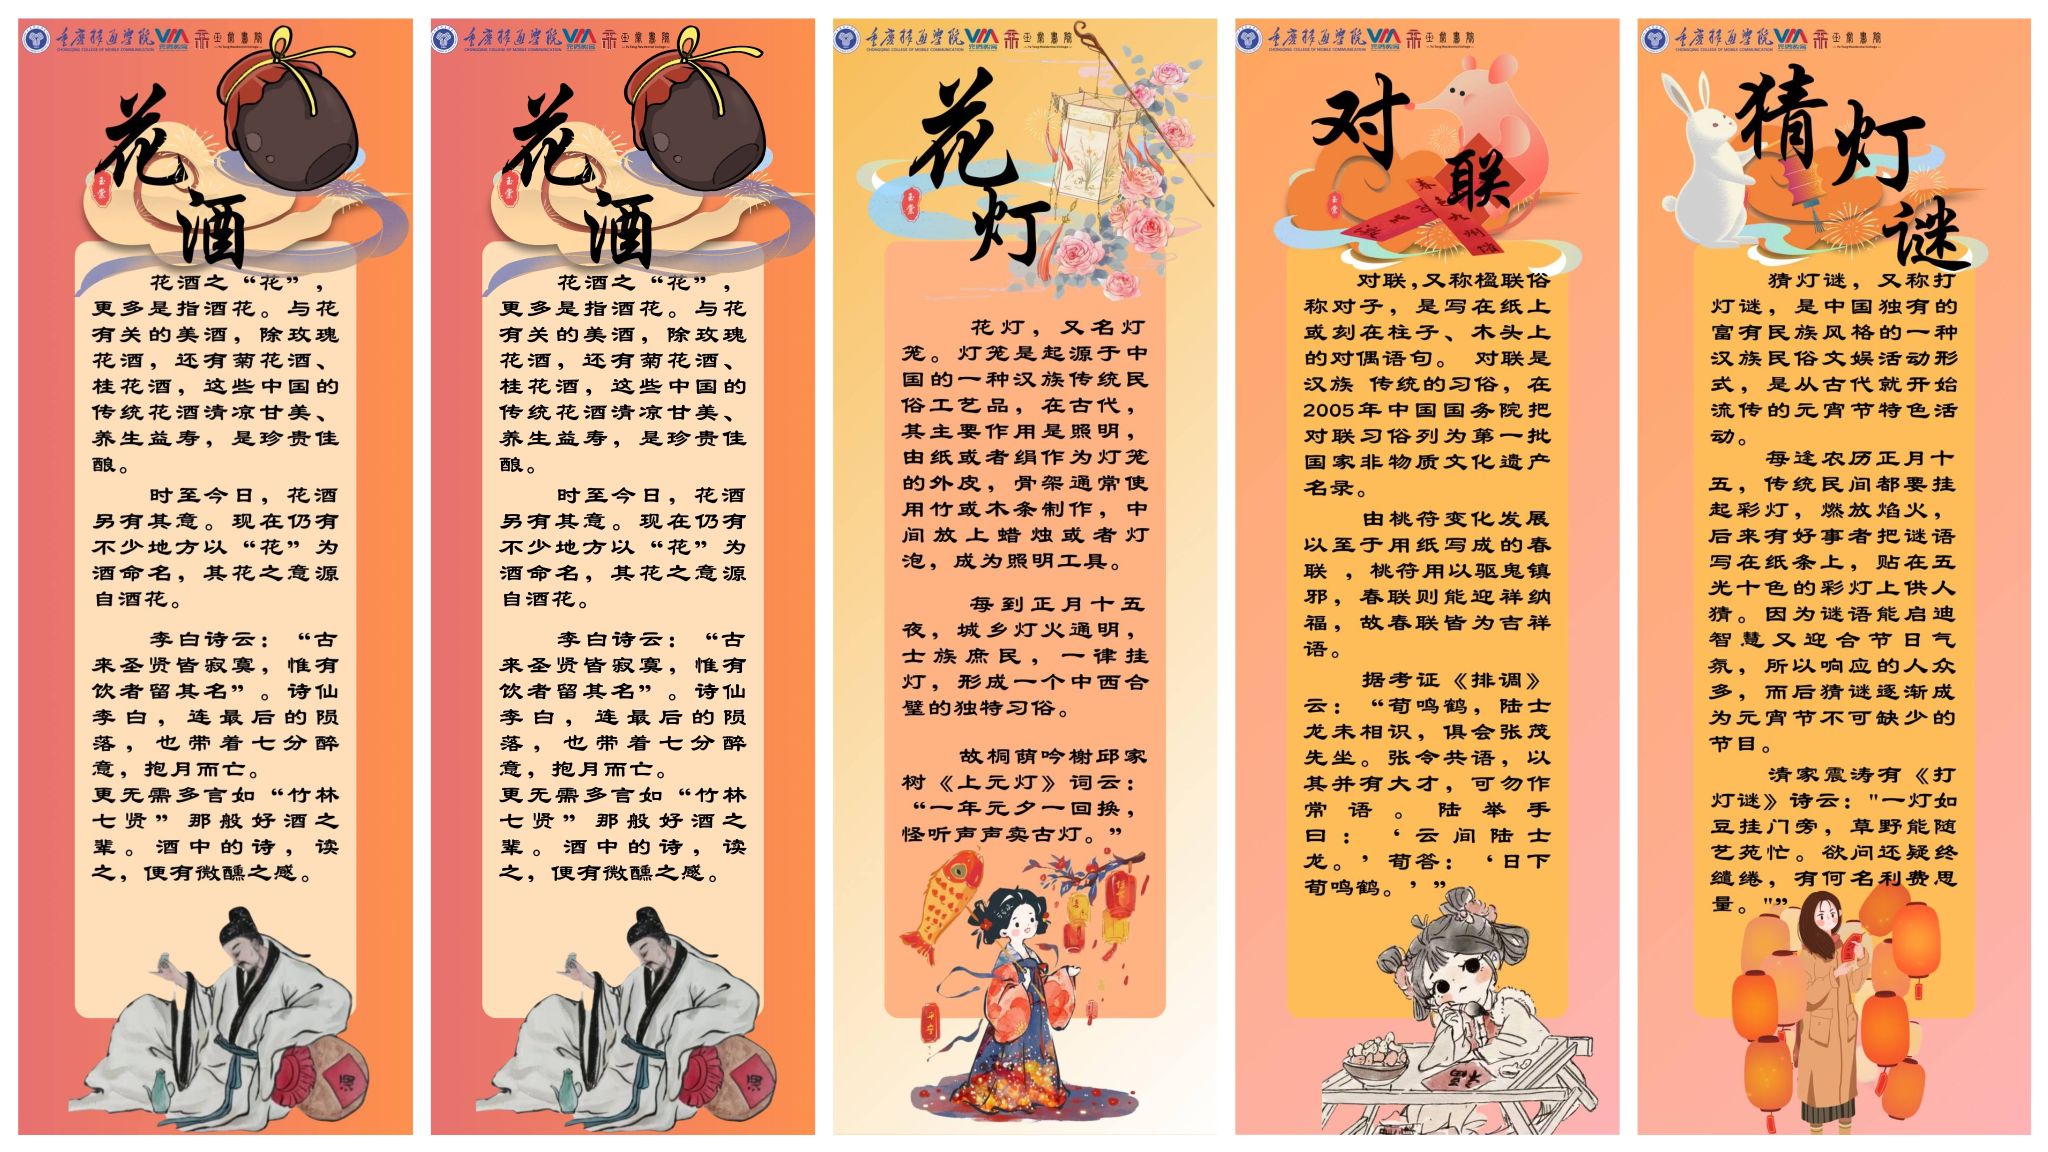 重庆移通学院
CHONGQING COLLEGE OF MOBILE COMMUNICATION
玉棠書院
Yu Tang Residential College
花酒
玉棠
花酒之“花”，
更多是指酒花。与花
有关的美酒，除玫瑰
花酒，还有菊花酒、
桂花酒，这些中国的
传统花酒清凉甘美、
养生益寿，是珍贵佳
酿。
时至今日，花酒
另有其意。现在仍有
不少地方以“花”为
酒命名，其花之意源
自酒花。
李白诗云：“古
来圣贤皆寂寞，惟有
饮者留其名”。诗仙
李白，连最后的陨
落，也带着七分醉
意，抱月而亡。
更无需多言如“竹林
七贤”那般好酒之
辈。酒中的诗，读
之，便有微醺之感。
酒
重庆移通学院
CHONGQING COLLEGE OF MOBILE COMMUNICATION
玉棠書院
Yu Tang Residential College
花酒
玉棠
花酒之“花”，
更多是指酒花。与花
有关的美酒，除玫瑰
花酒，还有菊花酒、
桂花酒，这些中国的
传统花酒清凉甘美、
养生益寿，是珍贵佳
酿。
时至今日，花酒
另有其意。现在仍有
不少地方以“花”为
酒命名，其花之意源
自酒花。
李白诗云：“古
来圣贤皆寂寞，惟有
饮者留其名”。诗仙
李白，连最后的陨
落，也带着七分醉
意，抱月而亡。
更无需多言如“竹林
七贤”那般好酒之
辈。酒中的诗，读
之，便有微醺之感。
重庆移通学院
CHONGQING COLLEGE OF MOBILE COMMUNICATION
玉棠書院
Yu Tang Residential College
花灯
玉棠
花灯，又名灯
笼。灯笼是起源于中
国的一种汉族传统民
俗工艺品，在古代，
其主要作用是照明，
由纸或者绢作为灯笼
的外皮，骨架通常使
用竹或木条制作，中
间放上蜡烛或者灯
泡，成为照明工具。
每到正月十五
夜，城乡灯火通明，
士族庶民，一律挂
灯，形成一个中西合
璧的独特习俗。
故桐荫吟榭邱家
树《上元灯》词云：
“一年元夕一回换，
怪听声声卖古灯。”
平安
重庆移通学院
CHONGQING COLLEGE OF MOBILE COMMUNICATION
玉棠書院
Yu Tang Residential College
对联
玉棠
对联，又称楹联俗
称对子，是写在纸上
或刻在柱子、木头上
的对偶语句。 对联是
汉族 传统的习俗，在
2005年中国国务院把
对联习俗列为第一批
国家非物质文化遗产
名录。
由桃符变化发展
以至于用纸写成的春
联 ，桃符用以驱鬼镇
邪，春联则能迎祥纳
福，故春联皆为吉祥
语。
据考证《排调》
云：“荀鸣鹤，陆士
龙未相识，俱会张茂
先坐。张令共语，以
其并有大才，可勿作
常语。陆举手
曰：‘云间陆士
龙。’荀答：‘日下
荀鸣鹤。’”
福
重庆移通学院
CHONGQING COLLEGE OF MOBILE COMMUNICATION
玉棠書院
Yu Tang Residential College
猜灯谜
猜灯谜，又称打
灯谜，是中国独有的
富有民族风格的一种
汉族民俗文娱活动形
式，是从古代就开始
流传的元宵节特色活
动。
每逢农历正月十
五，传统民间都要挂
起彩灯，燃放焰火，
后来有好事者把谜语
写在纸条上，贴在五
光十色的彩灯上供人
猜。因为谜语能启迪
智慧又迎合节日气
氛，所以响应的人众
多，而后猜谜逐渐成
为元宵节不可缺少的
节目。
清家震涛有《打
灯谜》诗云："一灯如
豆挂门旁，草野能随
艺苑忙。欲问还疑终
缱绻，有何名利费思
量。"”